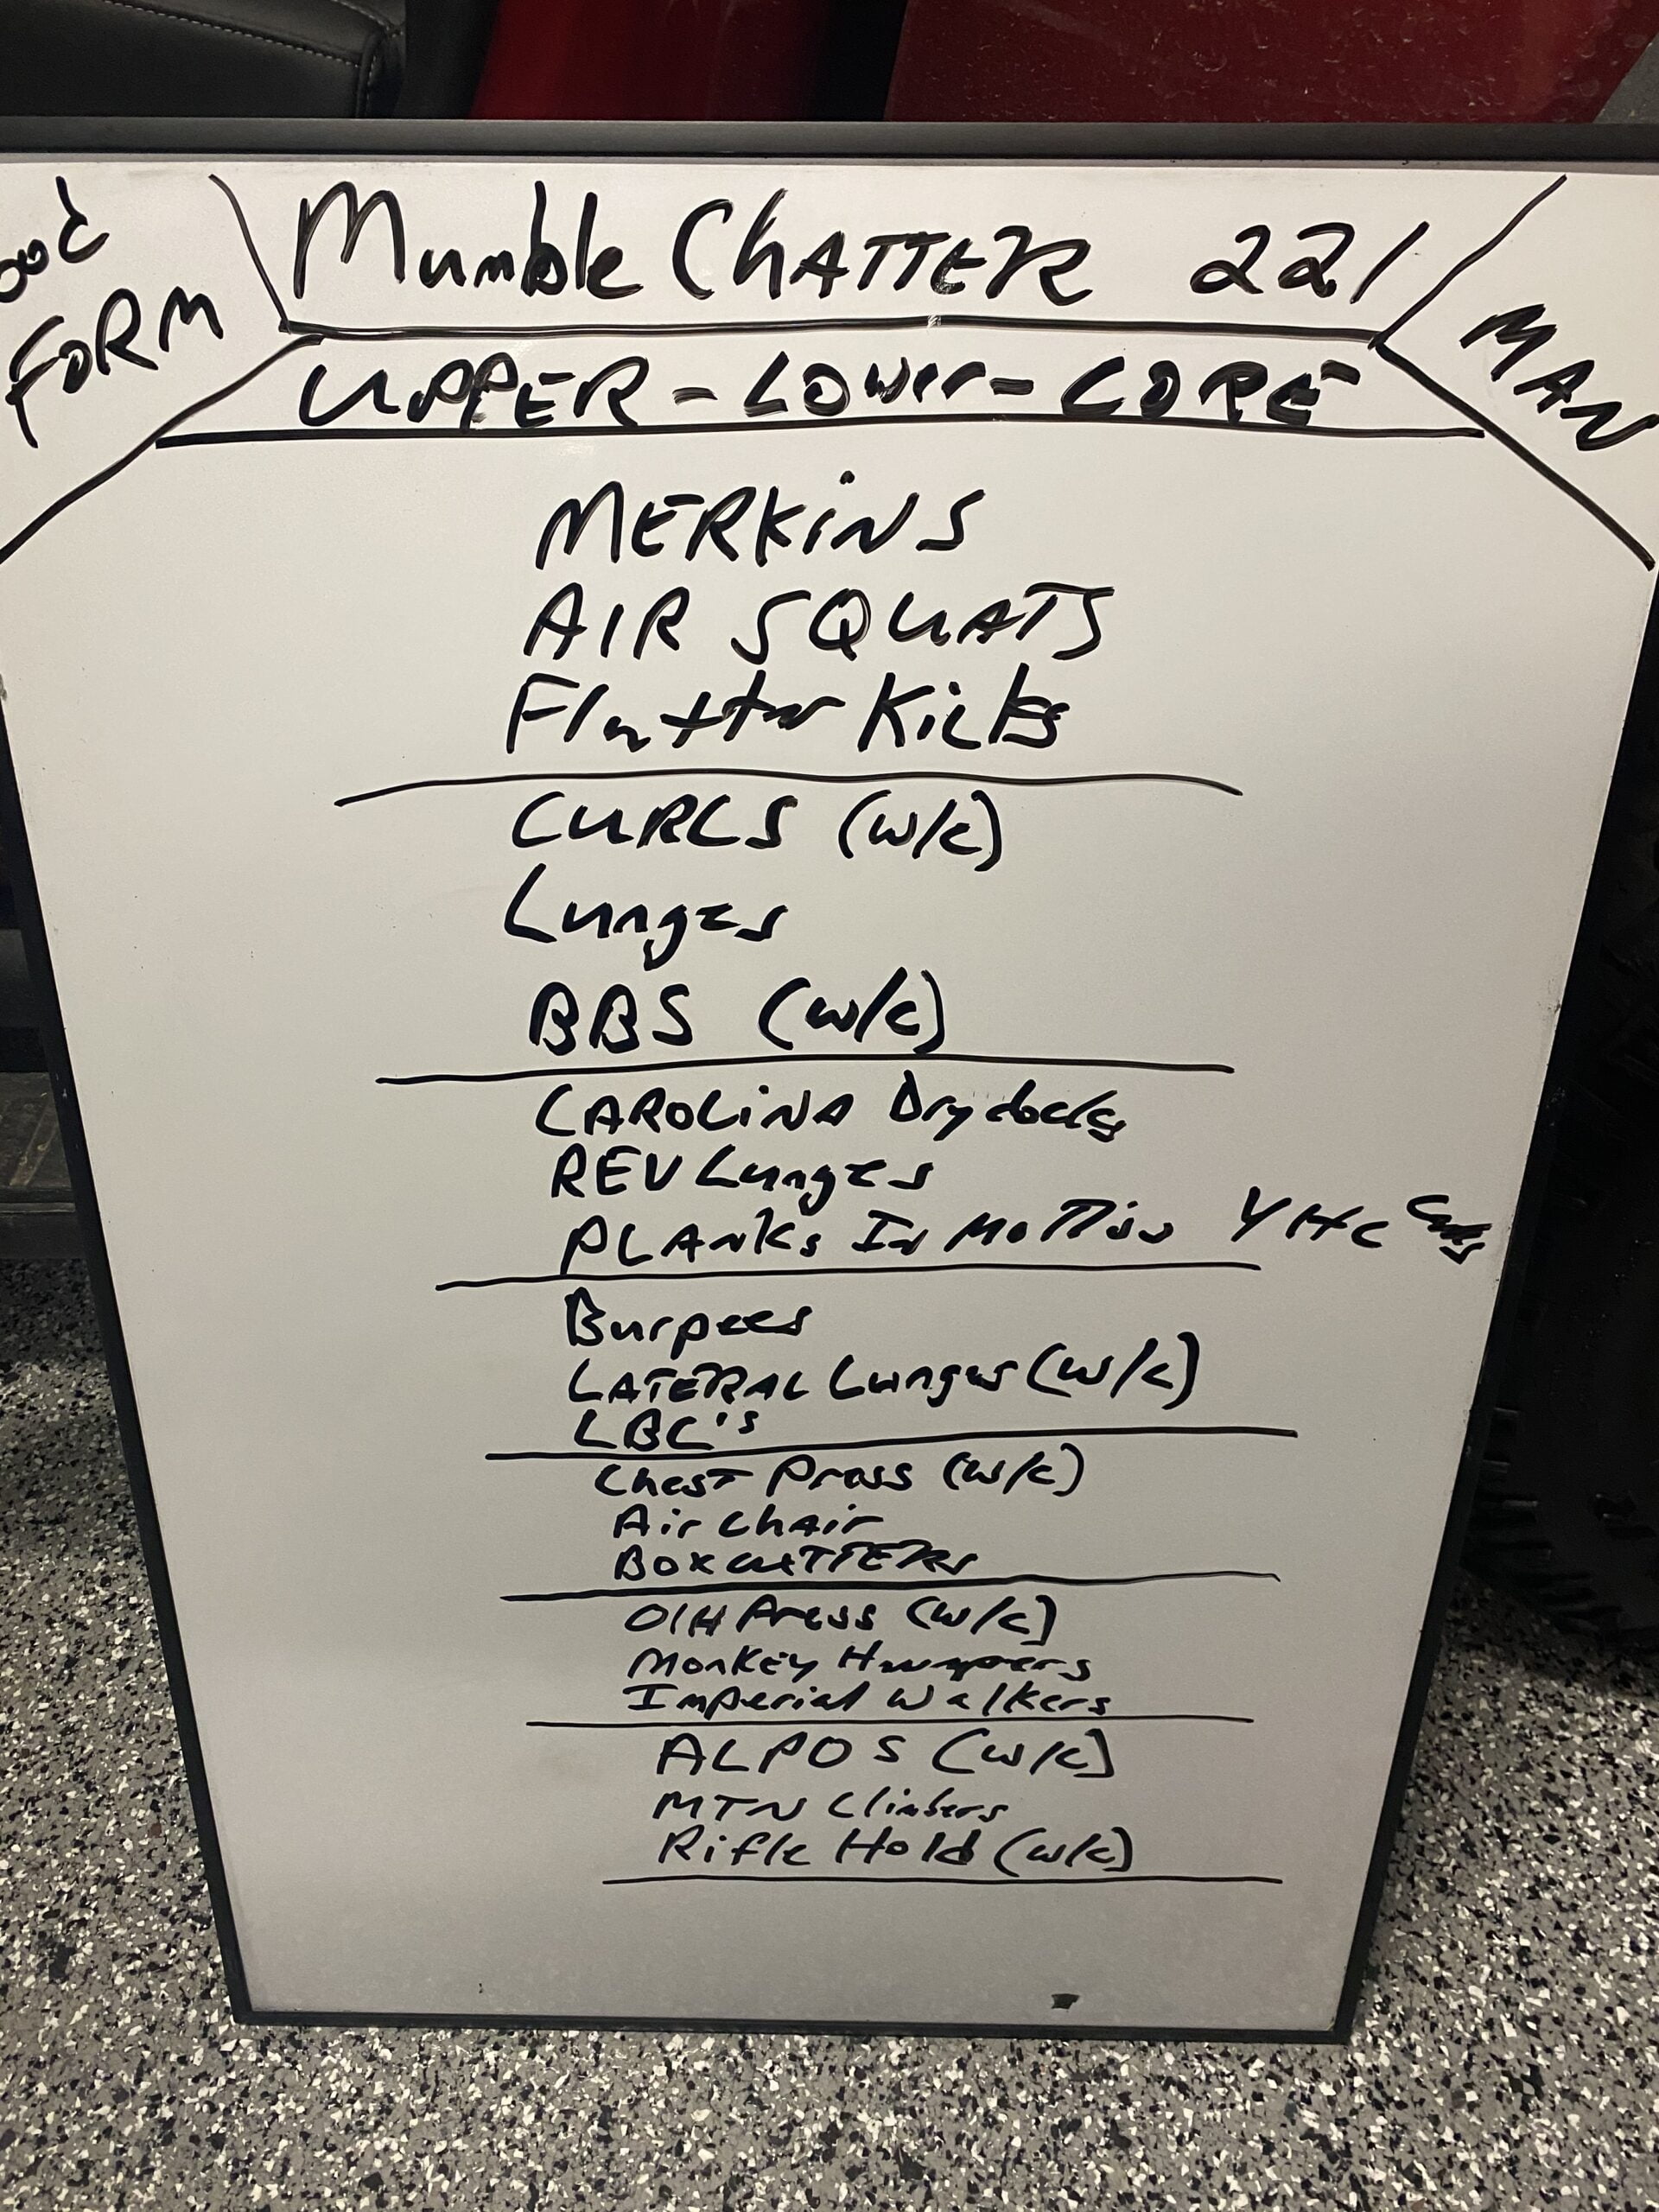 Mumble CHATTER 221
FORM
MAN
UPPER - LOWer - CORE
MERKiNS
AIR SQUATS
Flutter Kicks
CURLS (w/c)
Lunges
BBS (w/c)
CAROLiNA Drydocks
REV Lunges
PLANKs In MoTion YHC
Burpees
LATERAL Lunges (w/c)
LBC's
Chest Press (w/c)
Air Chair
BOXCuTTERs
O/H Press (w/c)
MonKEy Humpers
Imperial Walkers
ALPOS (w/c)
MTN Climbers
Rifle Hold (w/c)